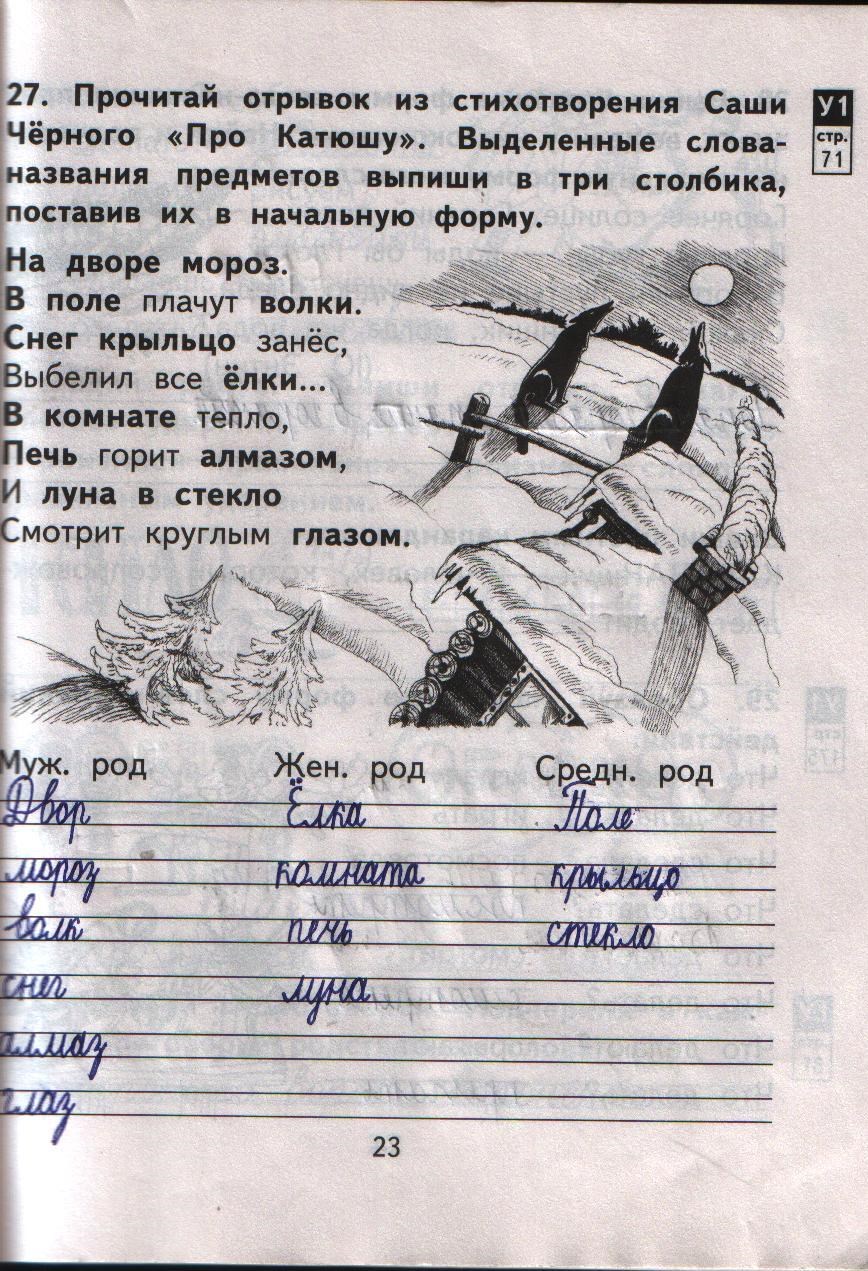 27. Прочитай отрывок из стихотворения Саши
Чёрного «Про Катюшу». Выделенные слова-
названия предметов выпиши в три столбика,
поставив их в начальную форму.
У1
стр.
71
На дворе мороз.
В поле плачут волки.
Снег крыльцо занёс,
Выбелил все ёлки...
В комнате тепло,
Печь горит алмазом,
И луна в стекло
Смотрит круглым глазом.
Муж. род Жен. род Средн. род
Двор Ёлка Поле
мороз комната крыльцо
волк печь стекло
снег луна
алмаз
глаз
23